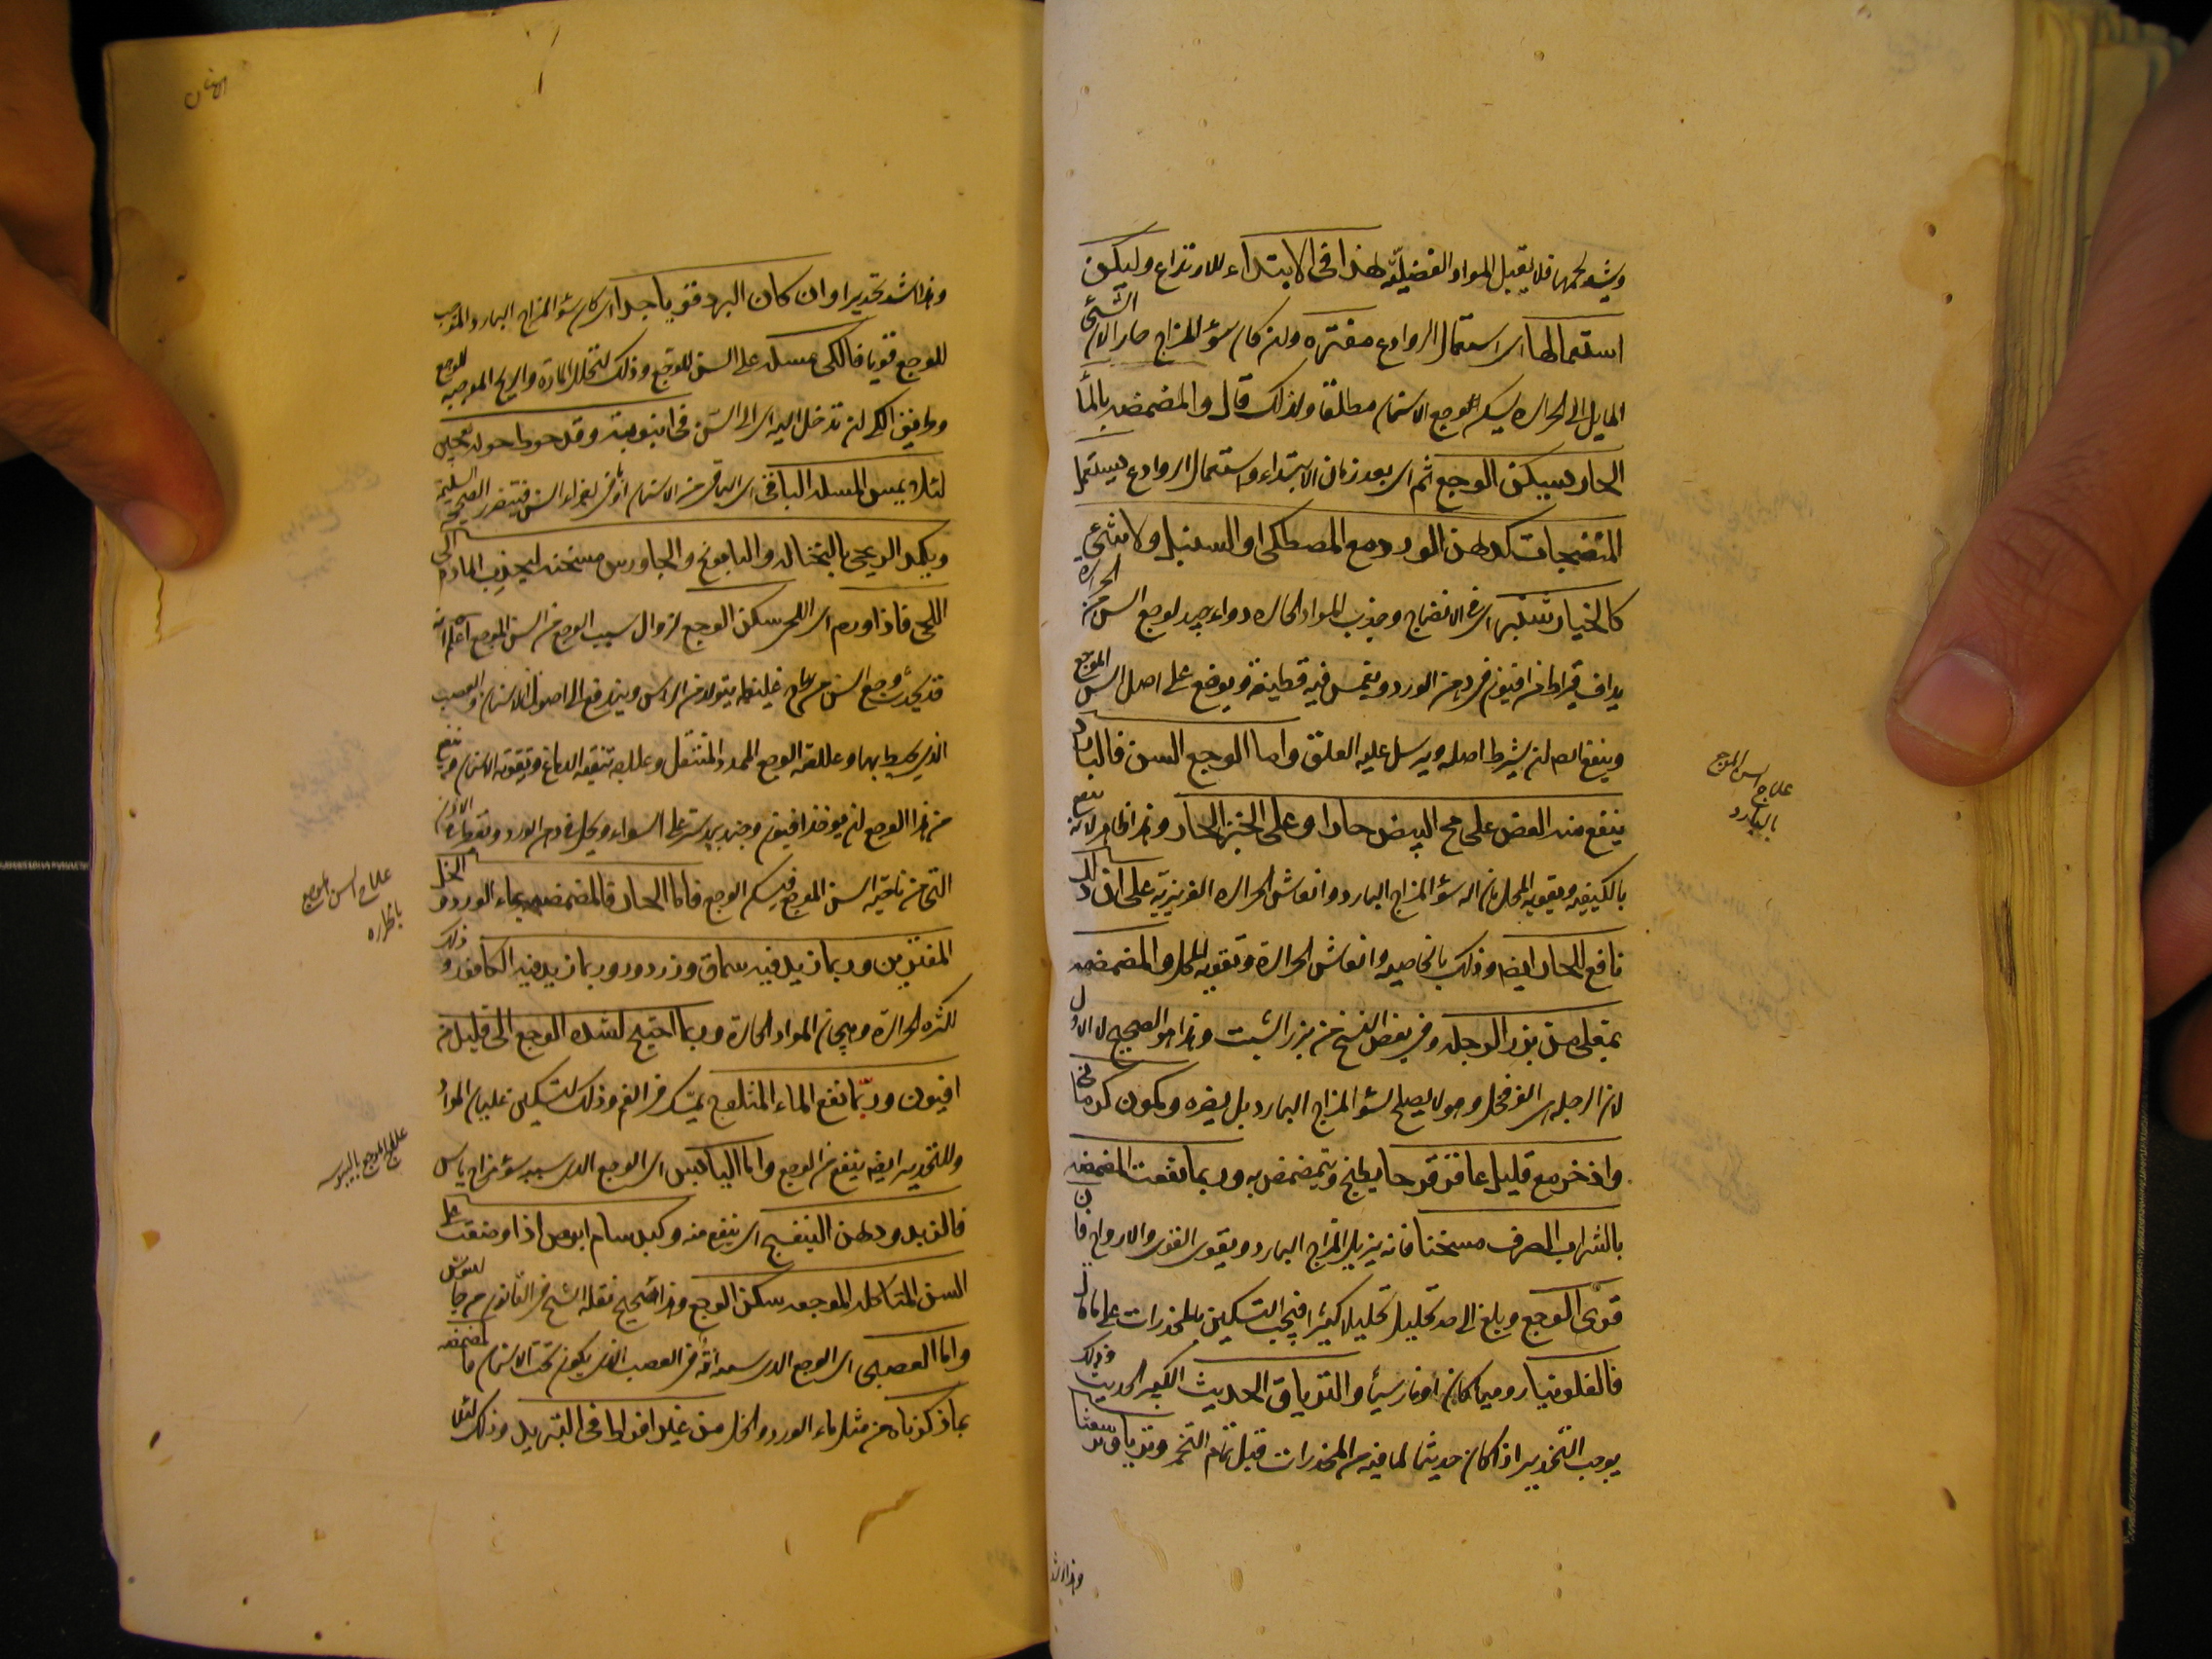 ويشد لحمها فلا يقبل المواد الفضلية هذا فى الابتداء للارتداع وليكن
استعمالها اى استعمال الروادع مفترة وان كان سؤ المزاج حار الان الشئ
المايل الى الحرارة يسكن الوجع الاسنان مطلقا ولذلك قال والمضمضه بالماء
الحار يسكن الوجع ثم اى بعد زمان الابتداء واستعمال الروادع يستعمل
المنضجات كدهن الورد مع المصطكى او السنبل ولا شئ
كالخيار شنبر اى فى الانضاج وجذب المواد الحاره دواء جيد لوجع السن من الحرارة
يداف قيراط من افيون فى دهن الورد ويغمس فيه قطينة ويوضع على اصل السن الموجع
وينفع ايضا ان يشرط اصله ويرسل عليه العلق واما الوجع السن فالبارد
ينفع منه العض على مح البيض حارا وعلى الخبز الحار وهذا ظاهر لانه ينفع
بالكيفيه وتقويه المحل بازاله سؤ المزاج البارد وانعاش الحراره الغريزيه على ان ذلك
نافع للحار ايضا وذلك بالخاصيه وانعاش الحرارة وتقويه المحل والمضمضه
بمغلى من بزر الرجله وفى بعض النسخ من بزر الشبت وهذا هو الصحيح لا الاول
لان الرجله اى الفرفخ وهو لا يصلح لسؤ المزاج البارد بل يضره وكمون كرمانى
واذخر مع قليل عاقرقرحا يطبخ ويتمضمض به وربما نفعت المضمضه
بالشراب الصرف مسخنا فانه يزيل المزاج البارد ويقوى القوى والارواح فان
قوى الوجع وبلغ الى حد تحليل تحليلا كثيرا فيجب التسكين بالمخدرات على ما قال
فالفلونيا روميا كان او فارسيا والترياق الحديث الكبير الحديث وذلك
يوجب التخدير اذا كان حديثا لما فيه من المخدرات قبل تمام التخمر وترياق برشعثا
علاج السن الموجع
بالبارد
وهذا اشد
وهذا اشد تخديرا وان كان البرد قويا جدا اى كان سؤ المزاج البارد الموجب
للوجع قويا فالكى بمسلة على السن الموجع وذلك لتحلل المادة والريح الموجبه للوجع
وطريق الكى ان تدخل اليه اى الى السن فى انبوبة وقد حوط حوله بعجين
لئلا يمس المسله الباقى اى الباقى من الاسنان او فى بعض اجزاء السن فيتضرر الصحيحه السليمه
ويكمد اللحى بالنخاله والبابونج والجاورس مسخنه ليجذب الماده الى
اللحى فاذا ورم اى اللحى سكن الوجع لزوال سبب الوجع من السن الموجع اعلم انه
قد يحدث وجع السن من رياح غليظه يتولد فى الراس ويندفع الى اصول الاسنان والعصب
الذى يحيط بها وعلامته الوجع الممدد المنتقل وعلاجه تنقيه الدماغ وتقويه الاسنان ومما ينفع
من هذا الوجع ان يؤخذ افيون وجندبيدستر على السواء ويحل فى دهن الورد ويقطر فى الاذن
التى من ناحيه السن الموجع فيسكن الوجع فاما الحار فالمضمضه بماء الورد والخل
المفترين وربما زيد فيه سماق وزر ورد وربما زيد فيه الكافور وذلك
لكثره الحرارة وهيجان المواد الحارة وربما احتيج لشده الوجع الى قليل من
افيون وربما نفع الماء المثلوج يمسك فى الفم وذلك لتسكين غليان المواد
وللتخدير ايضا ينفع من الوجع واما اليابس اى الوجع الذى سببه سؤ مزاج يابس
فالزبد ودهن البنفسج اى ينفع منه وكبد سام ابرص اذا وضعت على
السن المتاكله الموجعه سكن الوجع وهذا صحيح نقله الشيخ فى القانون عن جالينوس
واما العصبى اى الوجع الذى سببه آفة فى العصب الذى يكون تحت الاسنان فالمضمضه
بما ذكرناه من مثل ماء الورد والخل من غير افراط فى التبريد وذلك لئلا
علاج السن الموجع
بالحراره
علاج الموجع باليبوسه